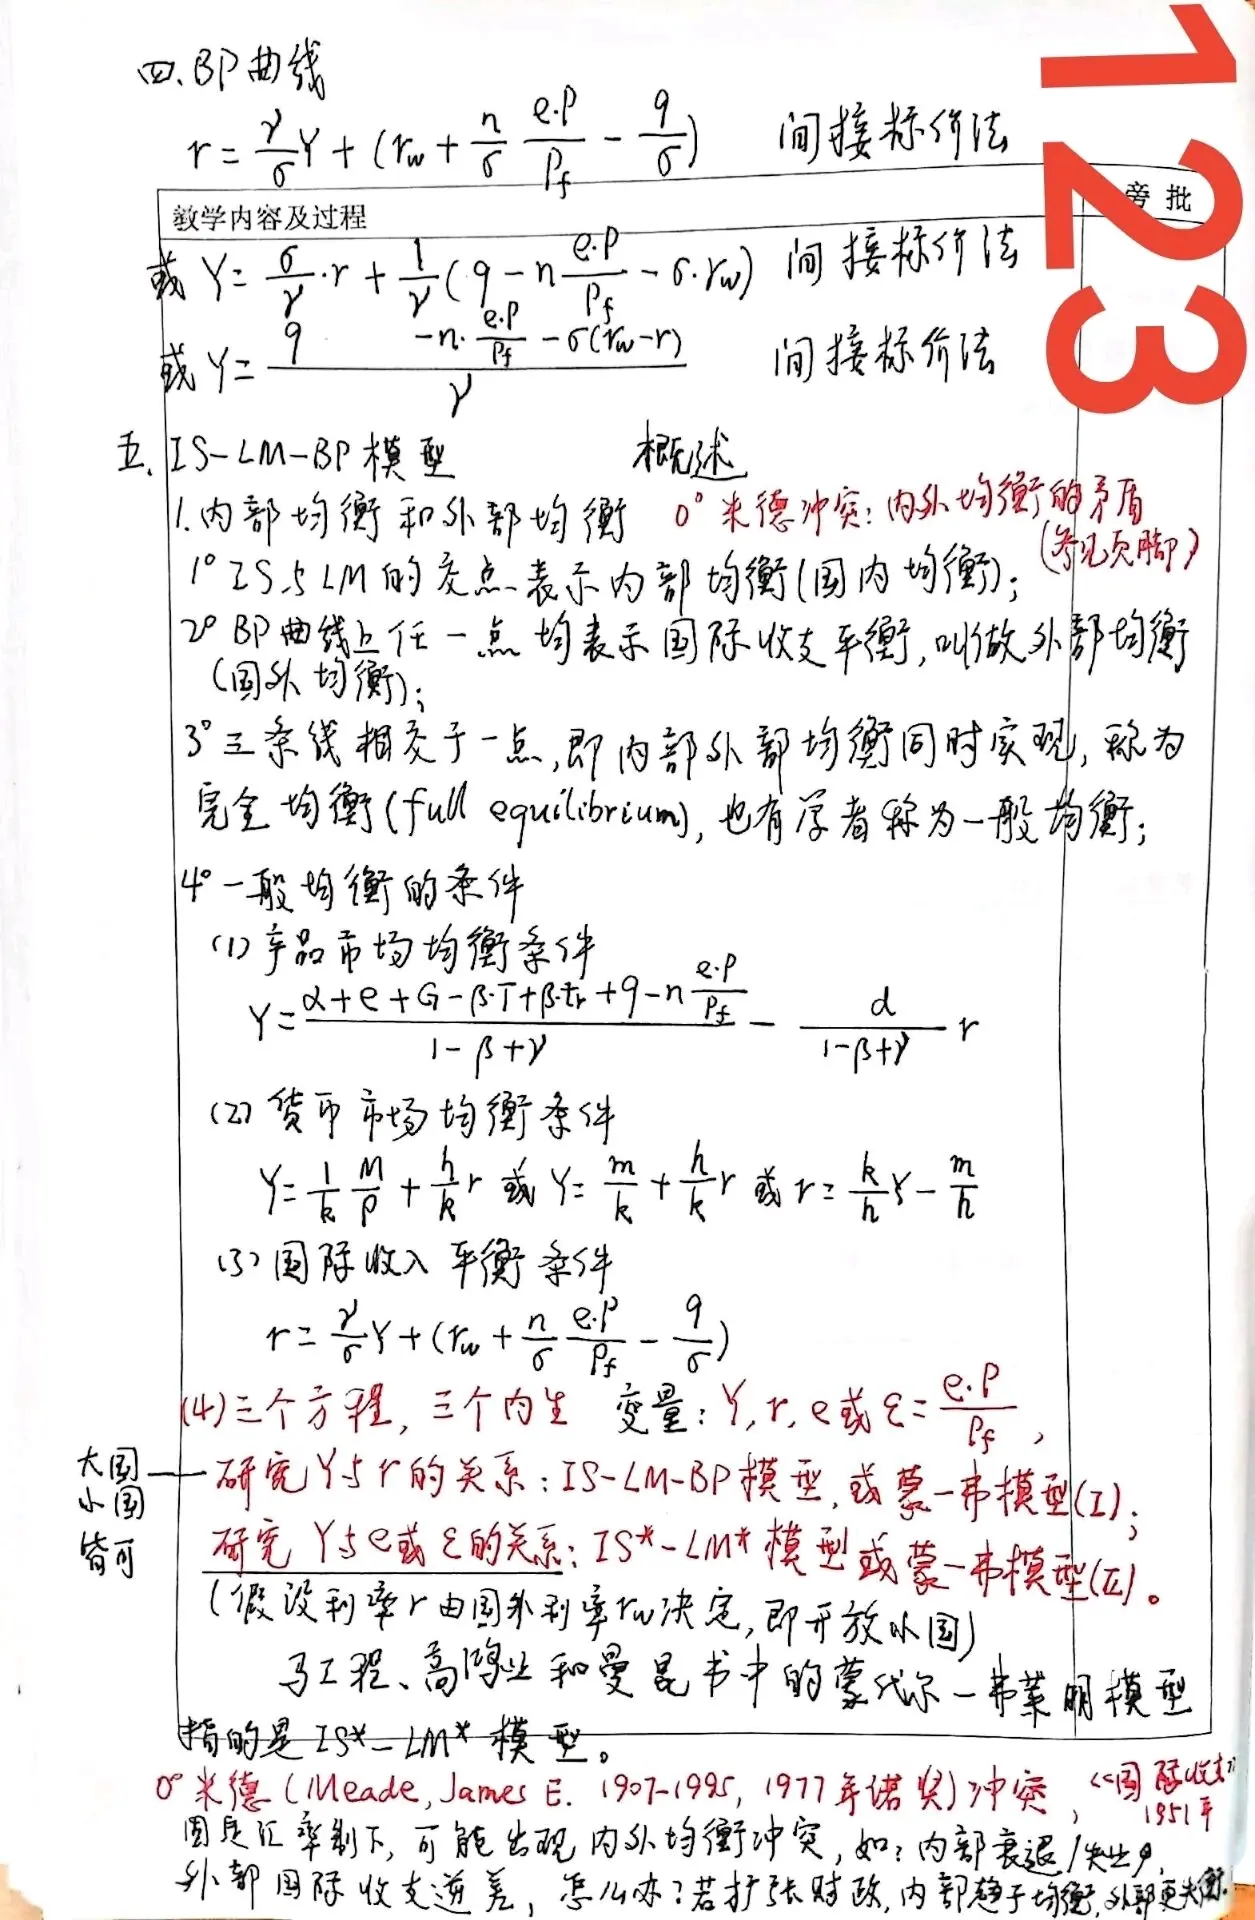 四、BP曲线
r = γ/σ Y + (r_w + n/σ e·P/P_f − q/σ) 间接标价法
123
教学内容及过程 旁批
或 Y = σ/γ · r + 1/γ (q − n e·P/P_f − σ·r_w) 间接标价法
或 Y = (q − n· e·P/P_f − σ(r_w − r))/γ 间接标价法
五、IS-LM-BP模型 概述
1.内部均衡和外部均衡 0° 米德冲突:内外均衡的矛盾
(参见页脚)
1° IS与LM的交点表示内部均衡(国内均衡);
2° BP曲线上任一点均表示国际收支平衡,叫做外部均衡
(国外均衡);
3° 三条线相交于一点,即内部外部均衡同时实现,称为
完全均衡(full equilibrium),也有学者称为一般均衡;
4° 一般均衡的条件
(1)产品市场均衡条件
Y = (α+e+G−β·T+β·tr+q−n e·P/P_f)/(1−β+γ) − d/(1−β+γ) r
(2)货币市场均衡条件
Y = 1/k M/P + h/k r 或 Y = m/k + h/k r 或 r = k/h Y − m/h
(3)国际收入平衡条件
r = γ/σ Y + (r_w + n/σ e·P/P_f − q/σ)
(4)三个方程,三个内生 变量:Y, r, e或ε = e·P/P_f,
大国
小国
皆可
研究Y与r的关系:IS-LM-BP模型,或蒙一弗模型(I);
研究Y与e或ε的关系:IS*-LM*模型或蒙一弗模型(II)。
(假设利率r由国外利率r_w决定,即开放小国)
马工程、高鸿业和曼昆书中的蒙代尔一弗莱明模型
指的是IS*-LM*模型。
0° 米德(Meade, James E. 1907-1995, 1977年诺奖)冲突,《国际收支》
1951年
固定汇率制下,可能出现内外均衡冲突,如:内部衰退/失业,
外部国际收支逆差,怎么办?若扩张财政,内部趋于均衡,外部更失衡.